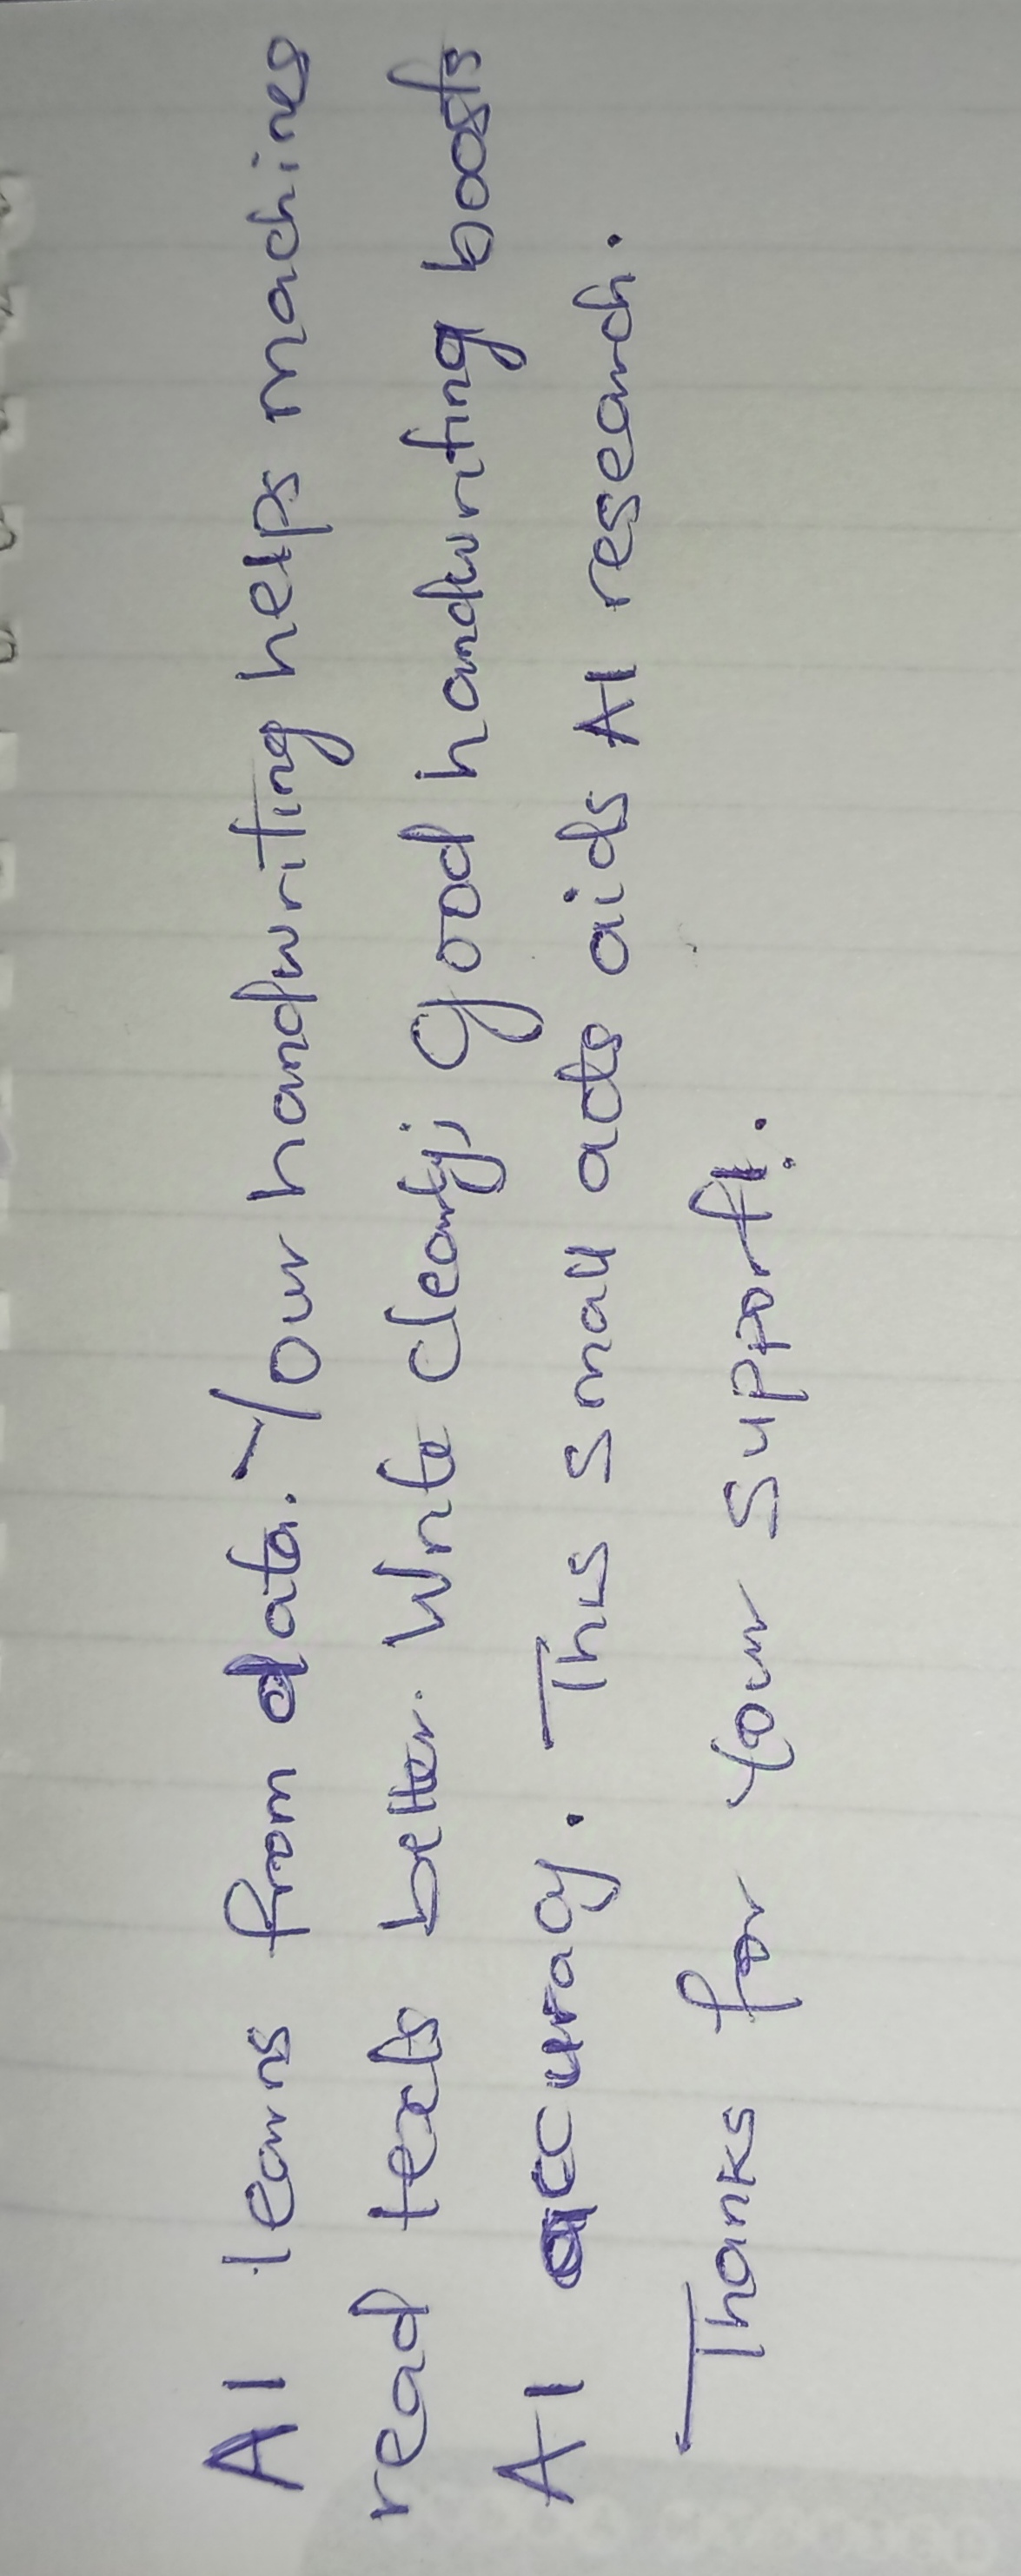 AI learns from data. Your handwriting helps machines
read texts better. Write clearly; good handwriting boosts
AI accuracy. This small acts aids AI research.
Thanks for your support!.